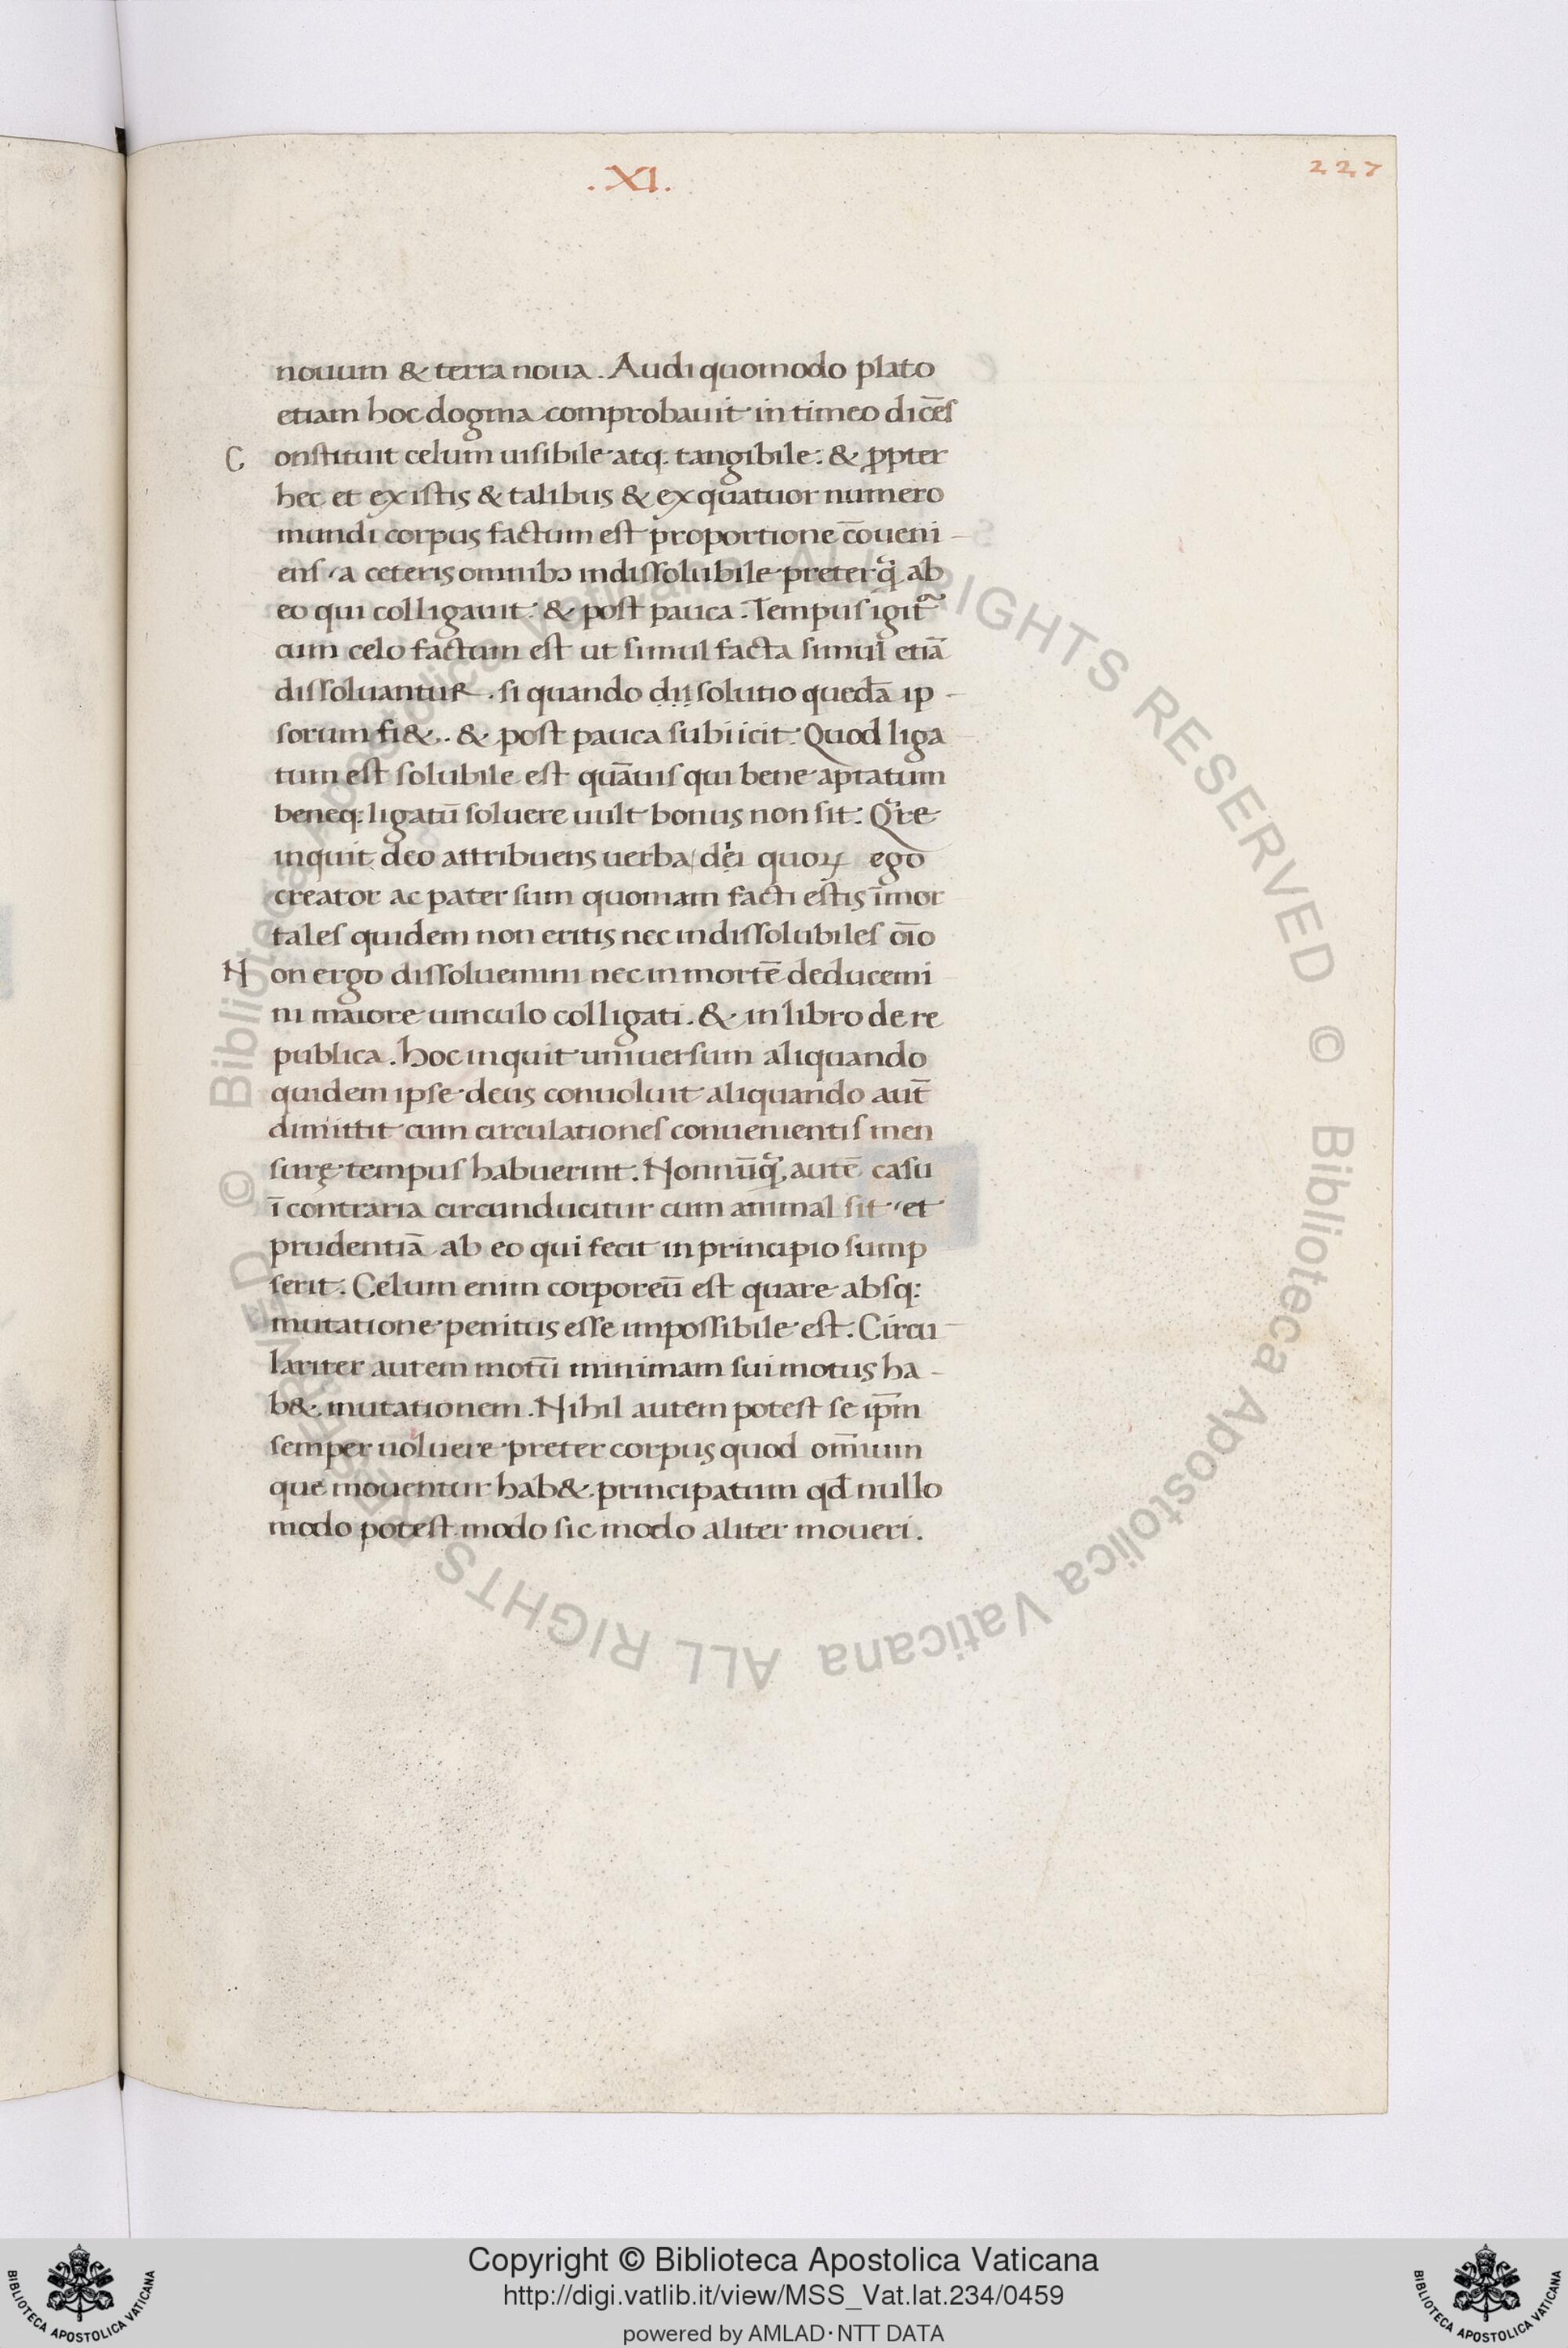 .XI.
227
nouum & terra noua. Audi quomodo plato
etiam hoc dogma comprobauit in timeo dicēs
Constituit celum uisibile atq. tangibile: & ꝓpter
hec et ex istis & talibus & ex quatuor numero
mundi corpus factum est proportione cōueni-
ens a ceteris omnibꝫ indissolubile preterq̃ ab
eo qui colligauit: & post pauca. Tempus igit᷑
cum celo factum est ut simul facta simul etiā
dissoluantur. si quando dii solutio quedā ip-
sorum fi&. & post pauca subiicit: Quod liga
tum est solubile est quāuis qui bene aptatum
beneq: ligatū soluere uult bonus non sit: Qͣre
inquit deo attribuens uerba dei quoꝝ ego
creator ac pater sum quoniam facti estis īmor
tales quidem non eritis nec indissolubiles oīo
Non ergo dissoluemini nec in mortē deducemi
ni maiore uinculo colligati. & in libro de re
publica. Hoc inquit uniuersum aliquando
quidem ipse deus conuoluit aliquando aut̄
dimittit cum circulationes conuenientis men
surę tempus habuerint. Nonnūq̃ autē casu
ī contraria circunducitur cum animal sit et
prudentiā ab eo qui fecit in principio sump
serit: Celum enim corporeū est quare absq:
mutatione penitus esse impossibile est: Circu-
lariter autem motū minimam sui motus ha-
b& mutationem. Nihil autem potest se ip̄m
semper uoluere preter corpus quod om̄ium
que mouentur hab& principatum qd̄ nullo
modo potest modo sic modo aliter moueri.
© Biblioteca Apostolica Vaticana ALL RIGHTS RESERVED © Biblioteca Apostolica Vaticana ALL RIGHTS RESERVED
Copyright © Biblioteca Apostolica Vaticana
http://digi.vatlib.it/view/MSS_Vat.lat.234/0459
powered by AMLAD·NTT DATA
BIBLIOTECA APOSTOLICA VATICANA
BIBLIOTECA APOSTOLICA VATICANA